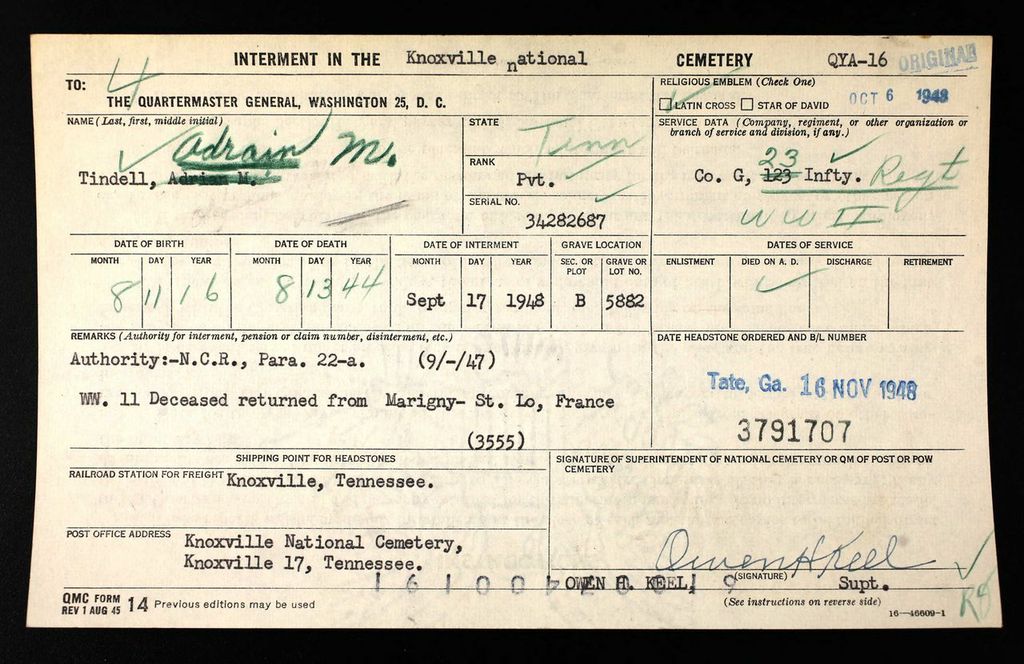 INTERMENT IN THE Knoxville national CEMETERY QYA-16 ORIGINAL
4
TO:
THE QUARTERMASTER GENERAL, WASHINGTON 25, D. C.
RELIGIOUS EMBLEM (Check One)
LATIN CROSS STAR OF DAVID OCT 6 1948
NAME (Last, first, middle initial)
Adrain M.
Tindell, Adrian M.
STATE
Tenn
RANK
Pvt.
SERIAL NO.
34282687
SERVICE DATA (Company, regiment, or other organization or
branch of service and division, if any.)
23
Co. G, 123 Infty. Regt
WW II
DATE OF BIRTH DATE OF DEATH DATE OF INTERMENT GRAVE LOCATION DATES OF SERVICE
MONTH DAY YEAR MONTH DAY YEAR MONTH DAY YEAR SEC. OR PLOT GRAVE OR LOT NO. ENLISTMENT DIED ON A. D. DISCHARGE RETIREMENT
8 11 16 8 13 44 Sept 17 1948 B 5882
REMARKS (Authority for interment, pension or claim number, disinterment, etc.)
Authority:-N.C.R., Para. 22-a. (9/-/47)
WW. 11 Deceased returned from Marigny- St. Lo, France
(3555)
DATE HEADSTONE ORDERED AND B/L NUMBER
Tate, Ga. 16 NOV 1948
3791707
SHIPPING POINT FOR HEADSTONES
RAILROAD STATION FOR FREIGHT Knoxville, Tennessee.
POST OFFICE ADDRESS Knoxville National Cemetery,
Knoxville 17, Tennessee.
SIGNATURE OF SUPERINTENDENT OF NATIONAL CEMETERY OR QM OF POST OR POW
CEMETERY
Owen H Keel
OWEN H. KEEL, (SIGNATURE) Supt.
(See instructions on reverse side)
QMC FORM
REV 1 AUG 45 14 Previous editions may be used
16—46609-1